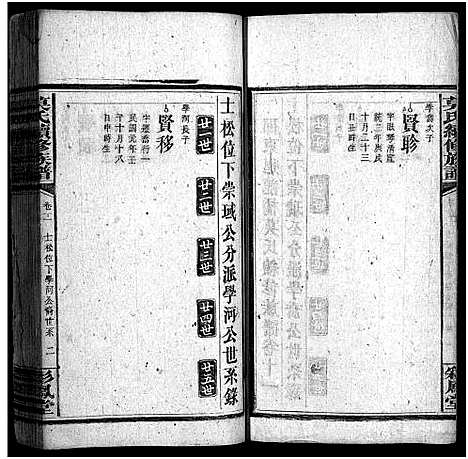 莫氏續修族譜
學 次子
賢聆
字 琴
統二年庚戌
十月二十三
日丑時生
彩鳳堂
士松位下崇域公分派學河公世系錄
廿一世
廿二世
廿三世
廿四世
廿五世
學河長子
賢移
字 喬行一
民國元年壬
子十月十八
日申時生
莫氏續修族譜
卷
士松位下學河公裔世系
二
彩鳳堂